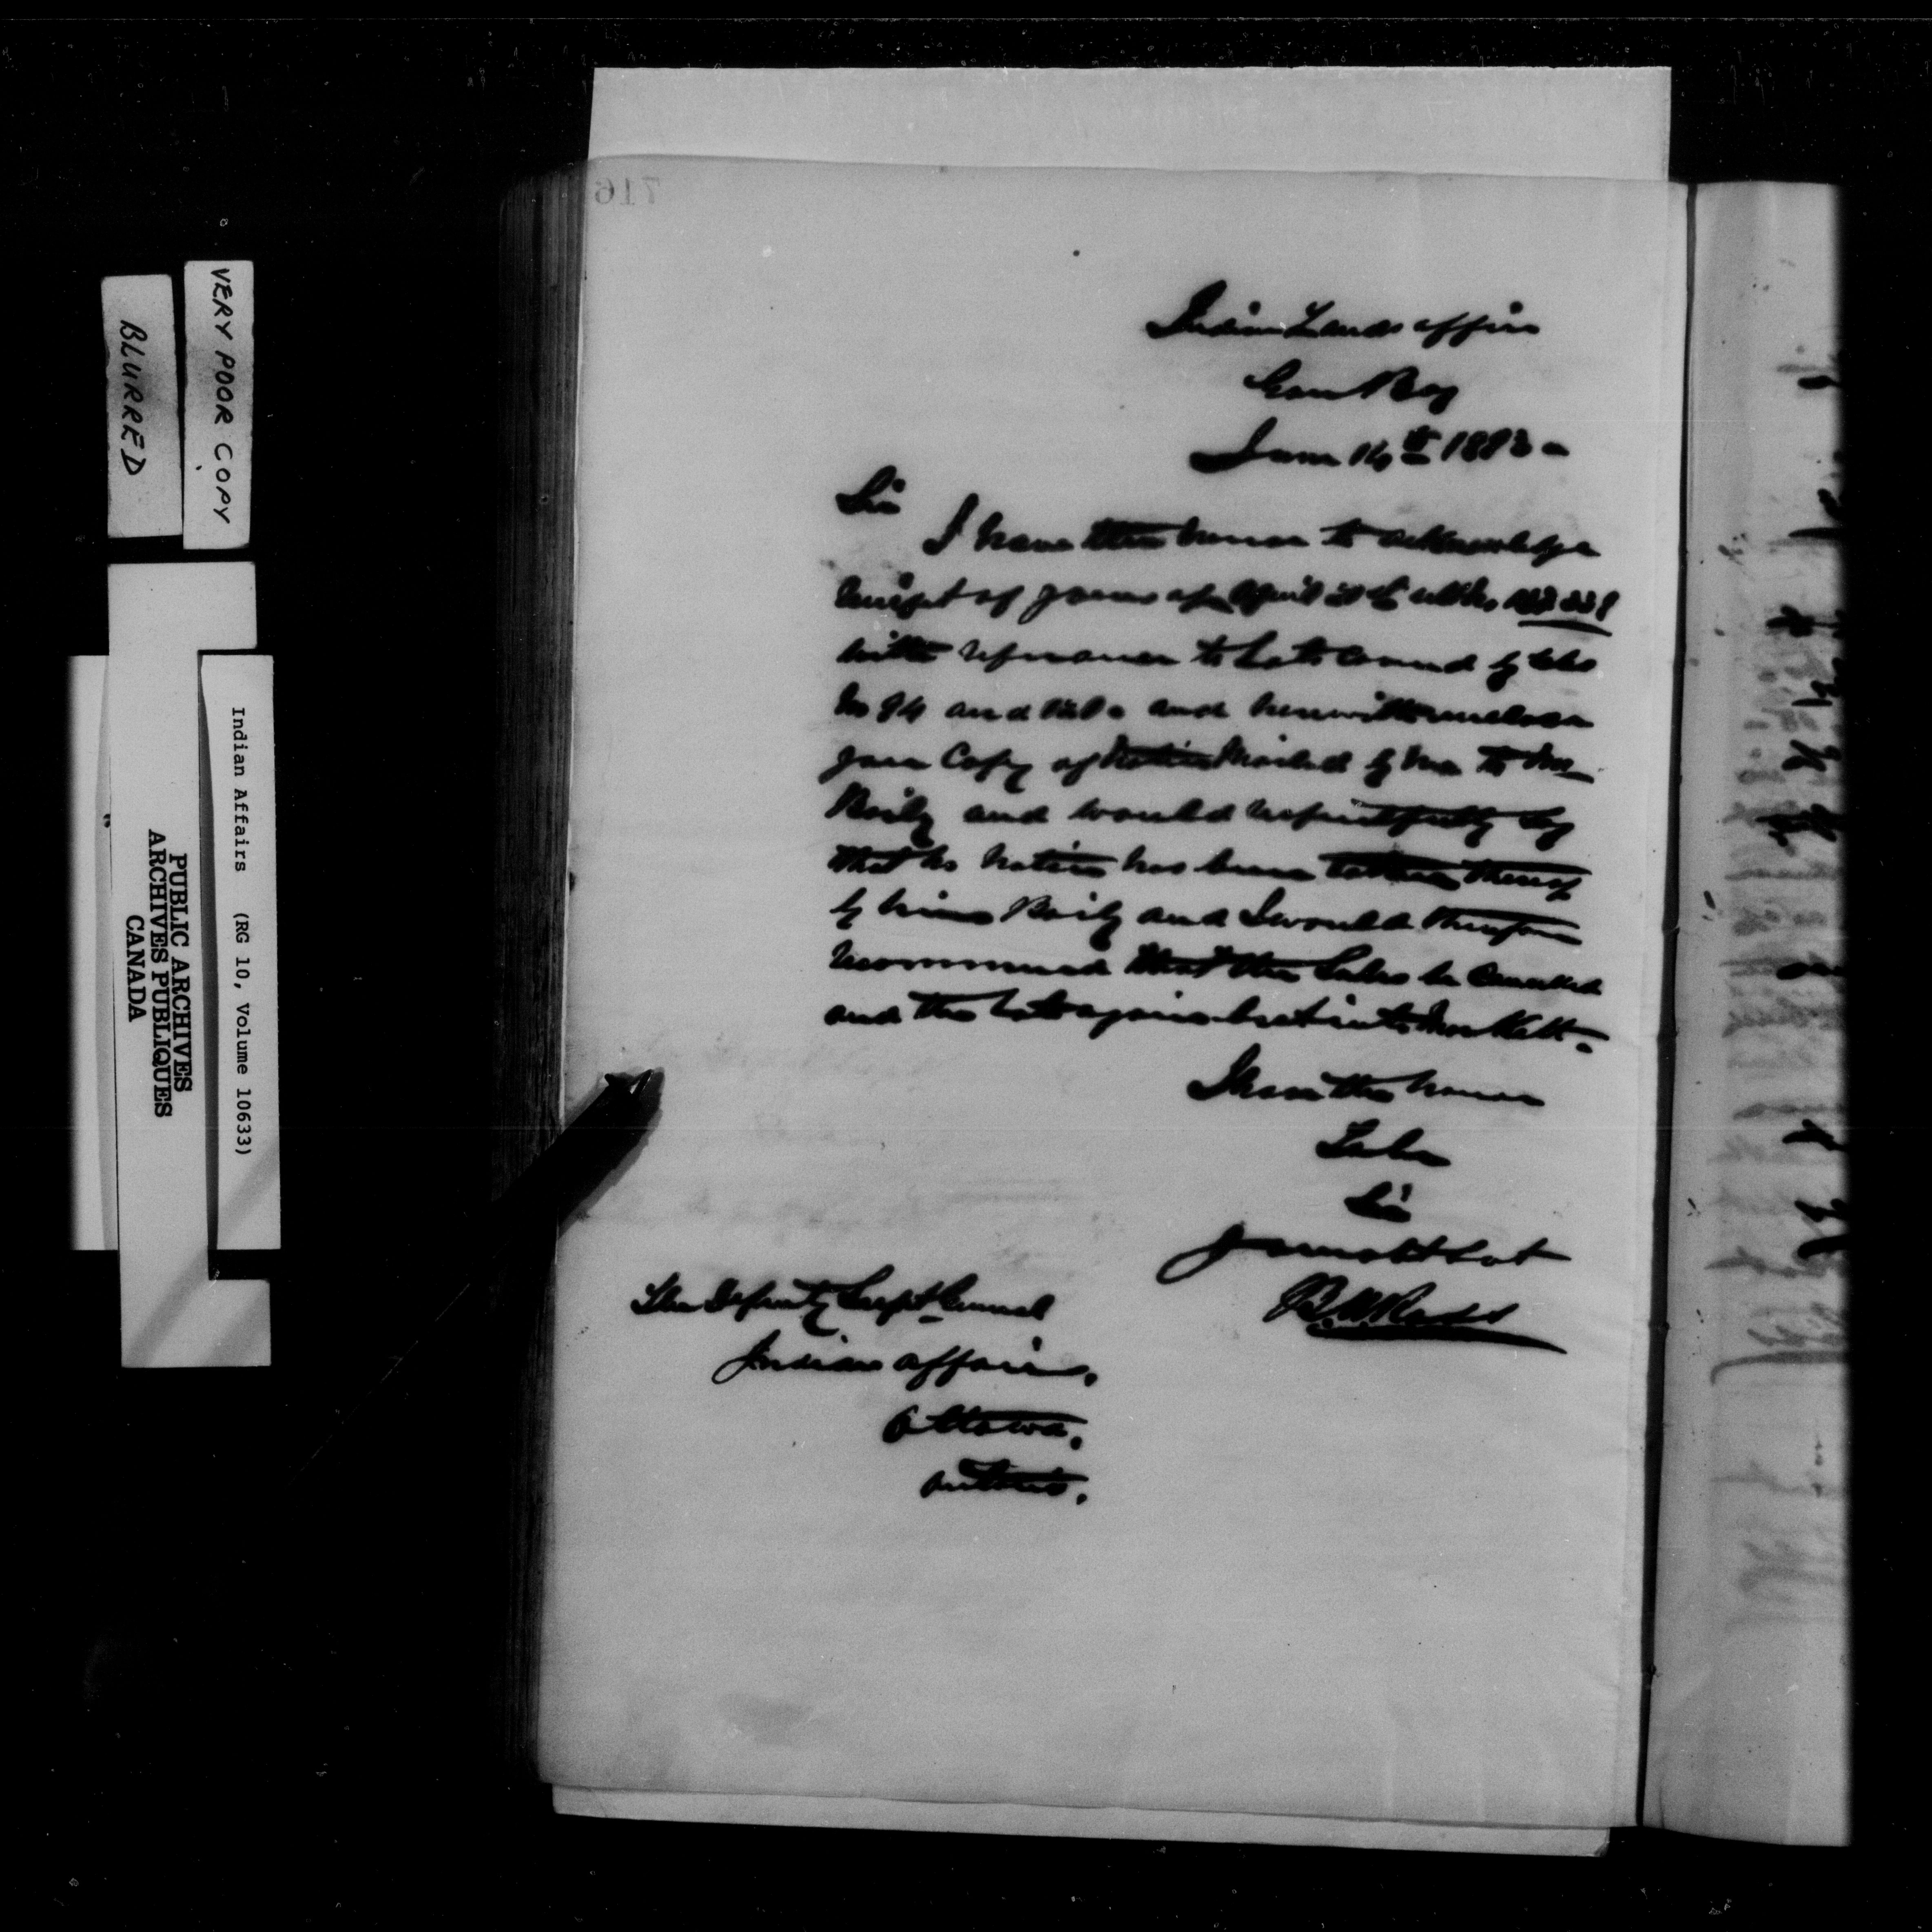 716
Indian Lands office
Gore Bay
June 14th 1883
Sir
I have the honor to acknowledge
receipt of yours of April
with reference to Lots covered by Sales
No 94 and and herewith enclose
you Copy of Notice Mailed by me to Mr
Baily and would respectfully say
that no notice has been taken thereof
by him Baily and I would therefore
recommend that the Sales be Cancelled
and the Lots again put into Markett.
I have the honor
To be
Sir
Your obt Svt
B.W. Ross
The Deputy Supt General
Indian affairs.
Ottawa.
Ontario.
VERY POOR COPY
BLURRED
Indian Affairs (RG 10, Volume 10633)
PUBLIC ARCHIVES
ARCHIVES PUBLIQUES
CANADA